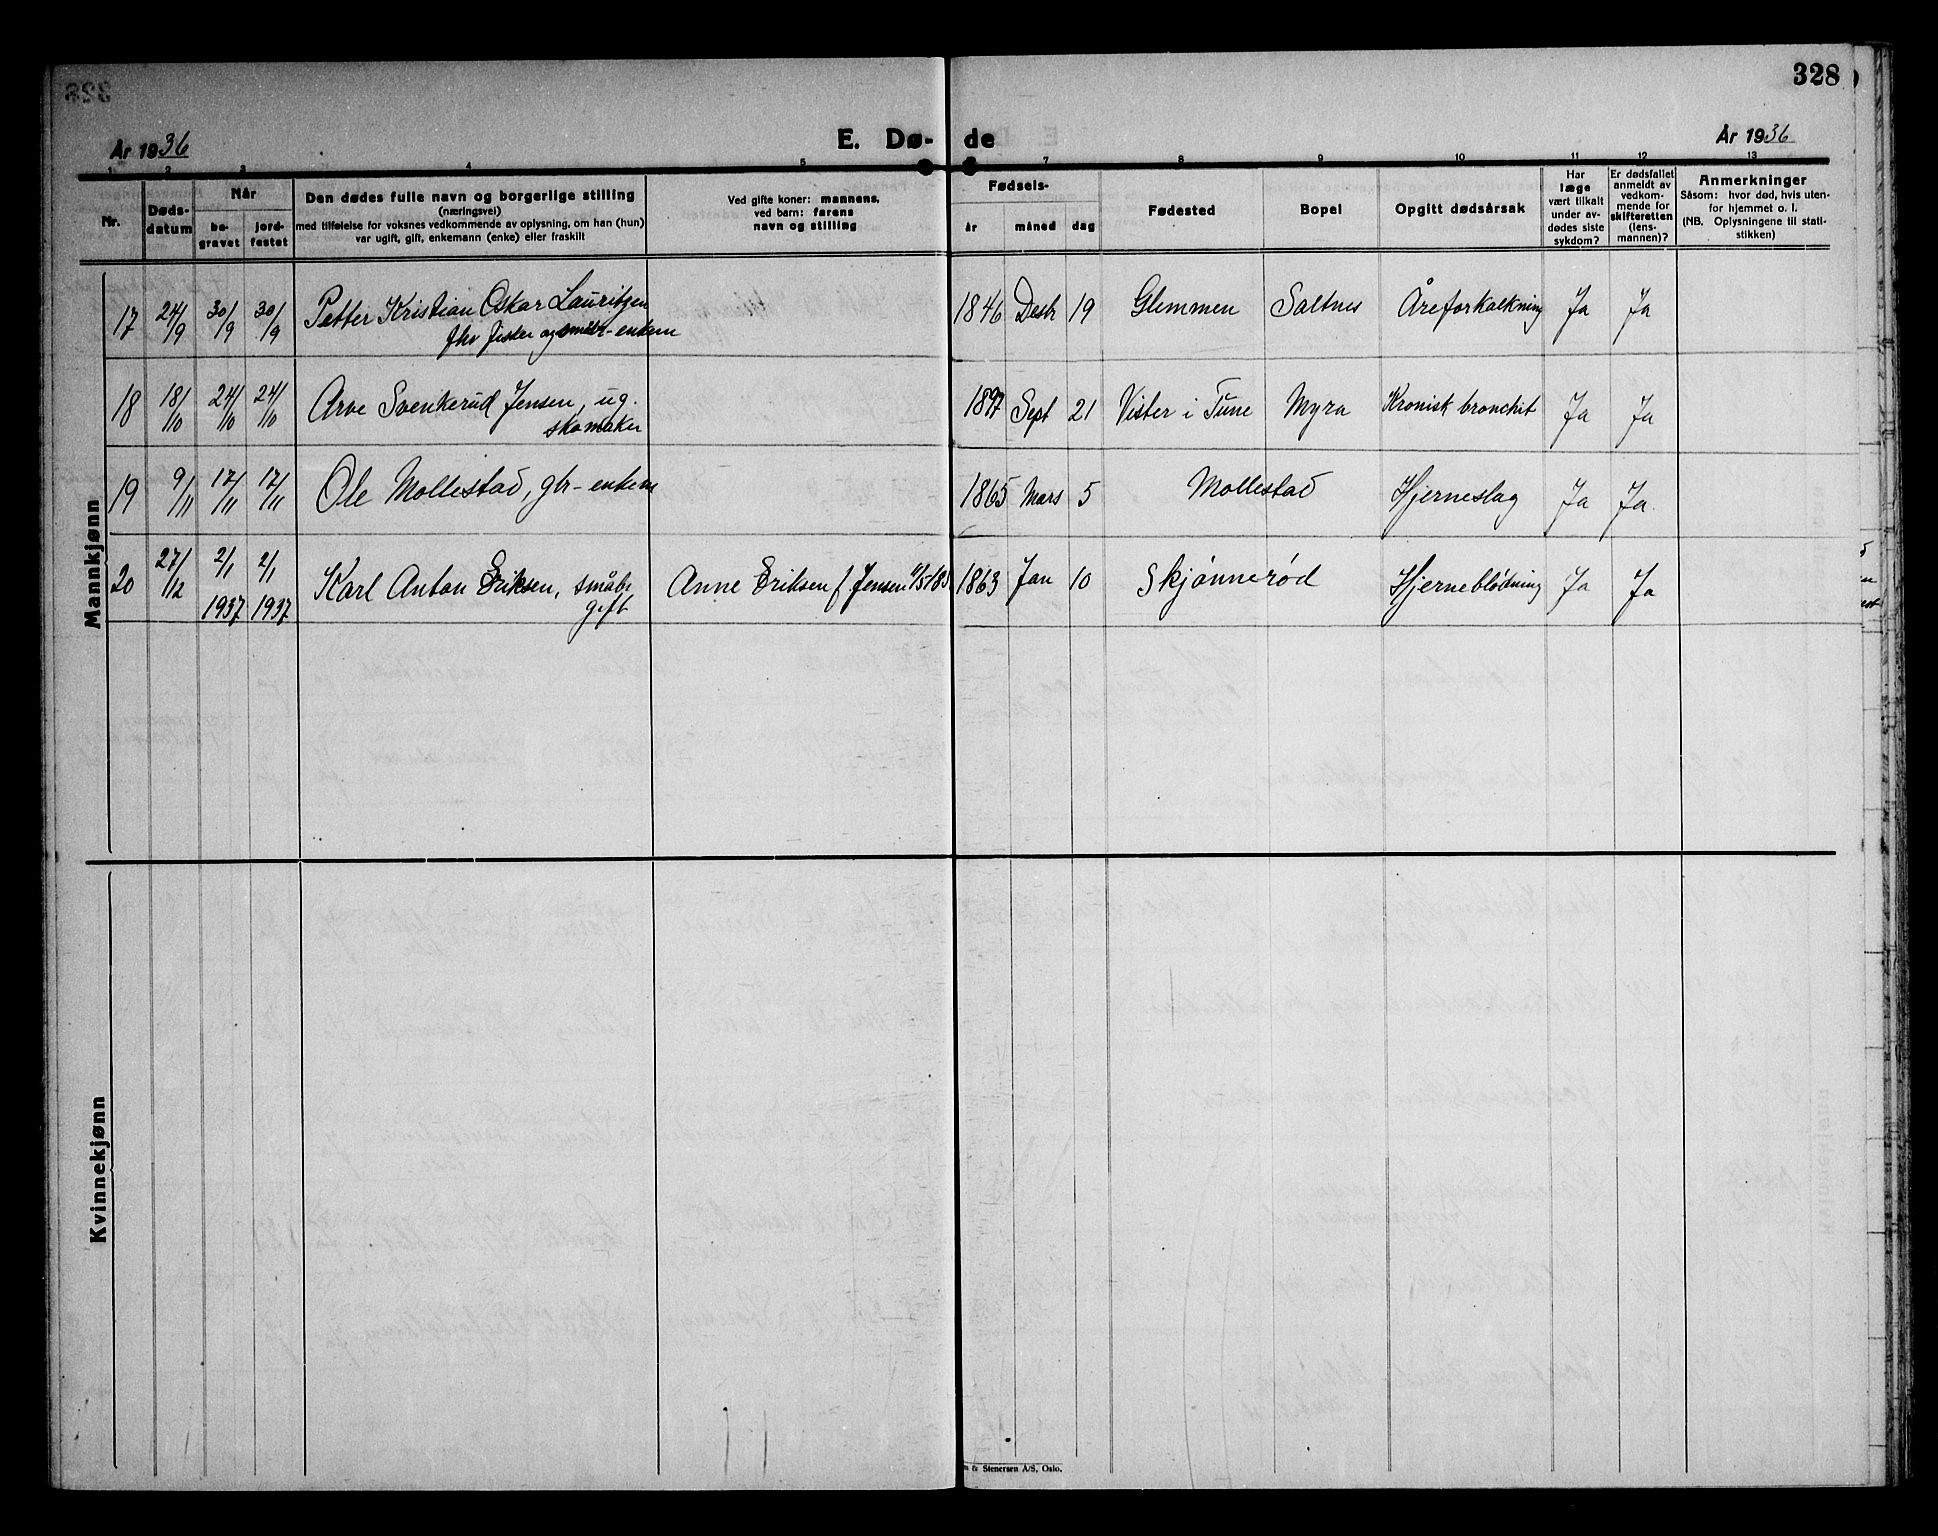 328
År 1936
E. Dø-
de
År 1936
1 2 3 4 5 7 8 9 10 11 12 13
Nr.
Døds-
datum
Når
be-
gravet
jord-
festet
Den dødes fulle navn og borgerlige stilling
(næringsvei)
med tilføielse for voksnes vedkommende av oplysning, om han (hun)
var ugift, gift, enkemann (enke) eller fraskilt
Ved gifte koner: mannens,
ved barn: farens
navn og stilling
Fødsels-
år måned dag
Fødested
Bopel
Opgitt dødsårsak
Har
læge
vært tilkalt
under av-
dødes siste
sykdom?
Er dødsfallet
anmeldt av
vedkom-
mende for
skifteretten
(lens-
mannen)?
Anmerkninger
Såsom: hvor død, hvis uten-
for hjemmet o. l.
(NB. Oplysningene til stati-
stikken)
Mannkjønn
17 24/9 30/9 30/9 Petter Kristian Oskar Lauritzen 1846 Desbr 19 Glemmen Saltnes Åreforkalkning Ja Ja
fhv fisker og smør-enkem
18 18/10 24/10 24/10 Arve Svenkerud Jensen, ug. 1897 Sept 21 Vister i Tune Myra Kronisk bronchit Ja Ja
skomaker
19 9/11 17/11 17/11 Ole Mollestad, gbr-enkem 1865 Mars 5 Mollestad Hjerneslag Ja Ja.
20 27/12 2/1 2/1 Karl Anton Eriksen, småbr Anne Eriksen f Jensen 1863 Jan 10 Skjønnerød Hjerneblødning Ja Ja
1937 1937 gift
Kvinnekjønn
& Stenersen A/S, Oslo.